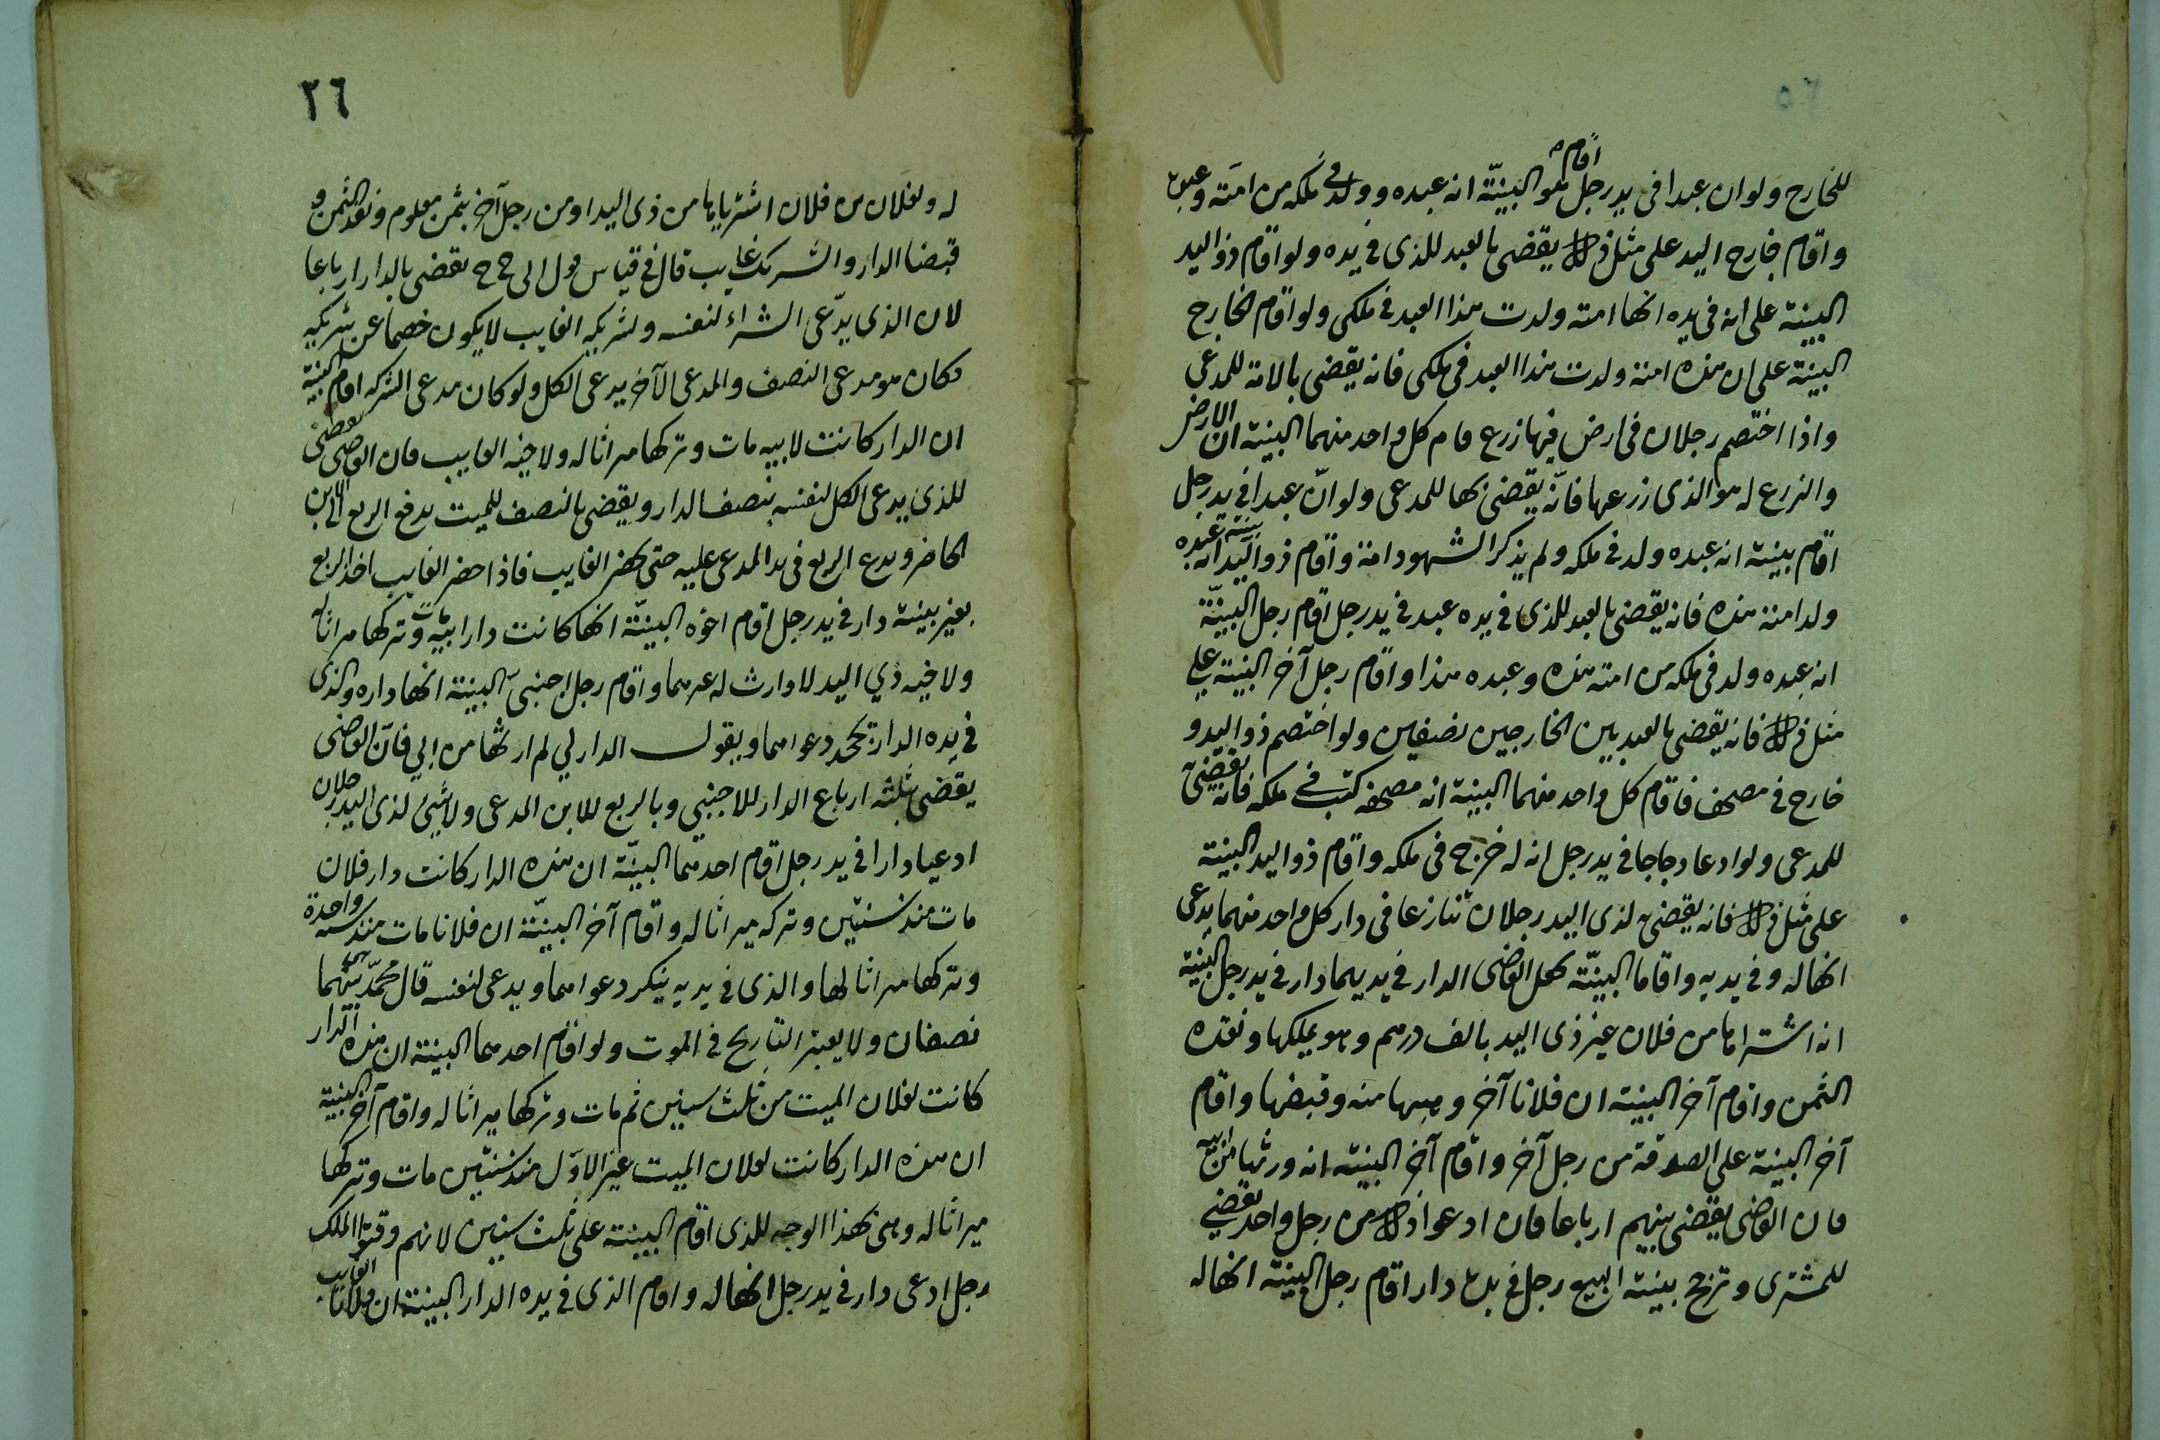 اقام
للخارج ولو ان عبدا فى يد رجل هو البينة انه عبده وولد فى ملكه من امته وعبده
واقام خارج اليد على مثل ذلك يقضى بالعبد للذى فى يده ولو اقام ذو اليد
البينة على انه فى يده انها امته ولدت هذا العبد فى ملكى ولو اقام الخارج
البينة على ان هذه امته ولدت هذا العبد فى ملكى فانه يقضى بالامة للمدعى
واذا اختصم رجلان فى ارض فيها زرع فام كل واحد منهما البينة ان الارض
والزرع له هو الذى زرعها فانّه يقضى بها للمدعى ولو انّ عبدا فى يد رجل
اقام بينة انه عبده ولد فى ملكه ولم يذكر الشهود امته واقام ذو اليد بينة انه عبده
ولد امته هذه فانه يقضى بالعبد للذى فى يده عبد فى يد رجل اقام رجل البينّة
انه عبده ولد فى ملكه من امته هذه وعبده هذا واقام رجل آخر البينة على
مثل ذلك فانه يقضى بالعبد بين الخارجين نصفين ولو اختصم ذو اليد و
خارج فى مصحف فاقام كل واحد منهما البينة انه مصحفه كتب فى ملكه فانه يقضى
للمدعى ولو ادعا دجاجا فى يد رجل انه له خرج فى ملكه واقام ذو اليد البينة
على مثل ذلك فانه يقضى لذى اليد رجلان تنازعا فى دار كل واحد منهما يدعى
انها له وفى يديه واقاما البينّة يجعل القاضى الدار فى يديهما دار فى يد رجل البينة
انه اشتراها من فلان غير ذى اليد بالف درهم وهو يملكها ونقده
الثمن واقام آخر البينة ان فلانا آخر وهبها منه وقبضها واقام
آخر البينة على الصدقة من رجل آخر واقام آخر البينة انه ورثها من ابيه
فان القاضى يقضى بينهم ارباعا فان ادعوا ذلك من رجل واحد يقضى
للمشترى وترجح بينة البيع رجل فى يده دار اقام رجل البينة انها له
٢٦
له ولفلان من فلان اشترياها من ذى اليد او من رجل آخر بثمن معلوم ونقد الثمن و
قبضا الدار والشريك غايب قال فى قياس قول ابى ح ح يقضى بالدار ارباعا
لان الذى يدّعى الشراء لنفسه ولشريكه الغايب لا يكون خصما عن شريكه
فكان هو مدعى النصف والمدعى الآخر يدعى الكل ولو كان مدعى الشركة اقام البينة
ان الدار كانت لابيه مات وتركها ميراثا له ولاخيه الغايب فان القاضى يقضى
للذى يدعى الكل لنفسه بنصف الدار ويقضى بالنصف للميت يدفع الربع الى الابن
الحاضر ويدع الربع فى يد المدعى عليه حتى يحضر الغايب فاذا حضر الغايب اخذ الربع
بغير بينة دار فى يد رجل اقام اخوه البينّة انها كانت دار ابيه مات وتركها ميراثا له
ولاخيه ذي اليد لا وارث له غيرهما واقام رجل اجنبى البينة انها داره والذى
فى يده الدار يجحد دعواهما ويقول الدار لي لم ارثها من ابي فانّ القاضى
يقضى بثلثة ارباع الدار للاجنبي وبالربع للابن المدعى ولا شئ لذى اليد رجلان
ادعيا دارا فى يد رجل اقام احدهما البينّة ان هذه الدار كانت دار فلان
مات منذ سنتين وتركه ميراثا له واقام آخر البينّة ان فلانا مات منذ سنة واحدة
وتركها ميراثا لها والذى فى يديه ينكر دعواهما ويدعى لنفسه قال محمّد هى بينهما
نصفان ولا يعبتر التاريخ فى الموت ولو اقام احدهما البينة ان هذه الدار
كانت لفلان الميت من ثلث سنين ثم مات وتركها ميراثا له واقام آخر البينة
ان هذه الدار كانت لفلان الميت غير الاوّل منذ سنتين مات وتركها
ميراثا له وهى بهذا الوجه للذى اقام البينة على ثلث سنين لانهم وقتوا الملك
رجل ادعى دار فى يد رجل انها له واقام الذى فى يده الدار البينة ان فلانا الغايب